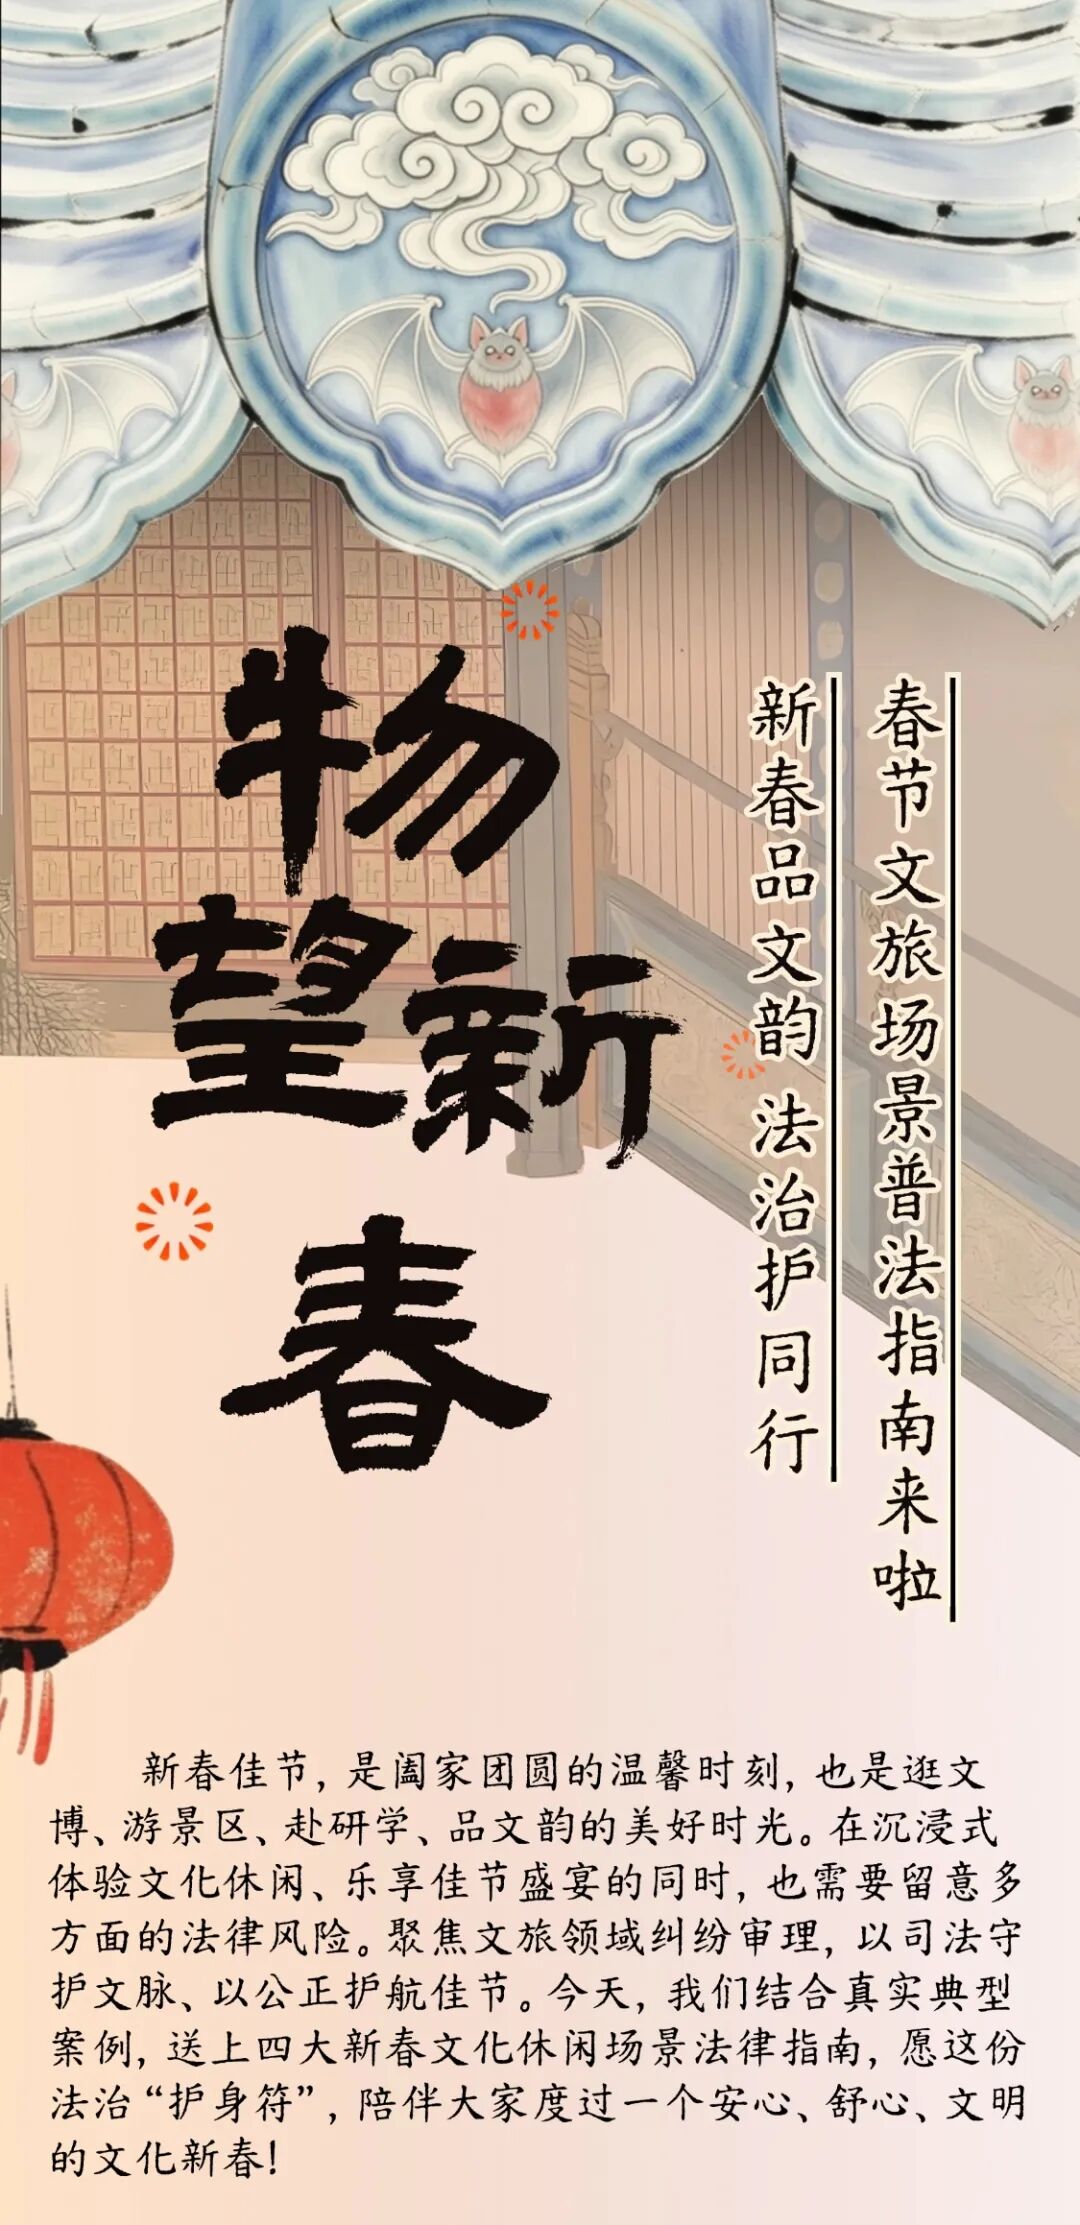 物
望新
春
春节文旅场景普法指南来啦
新春品文韵 法治护同行
新春佳节，是阖家团圆的温馨时刻，也是逛文
博、游景区、赴研学、品文韵的美好时光。在沉浸式
体验文化休闲、乐享佳节盛宴的同时，也需要留意多
方面的法律风险。聚焦文旅领域纠纷审理，以司法守
护文脉、以公正护航佳节。今天，我们结合真实典型
案例，送上四大新春文化休闲场景法律指南，愿这份
法治“护身符”，陪伴大家度过一个安心、舒心、文明
的文化新春！